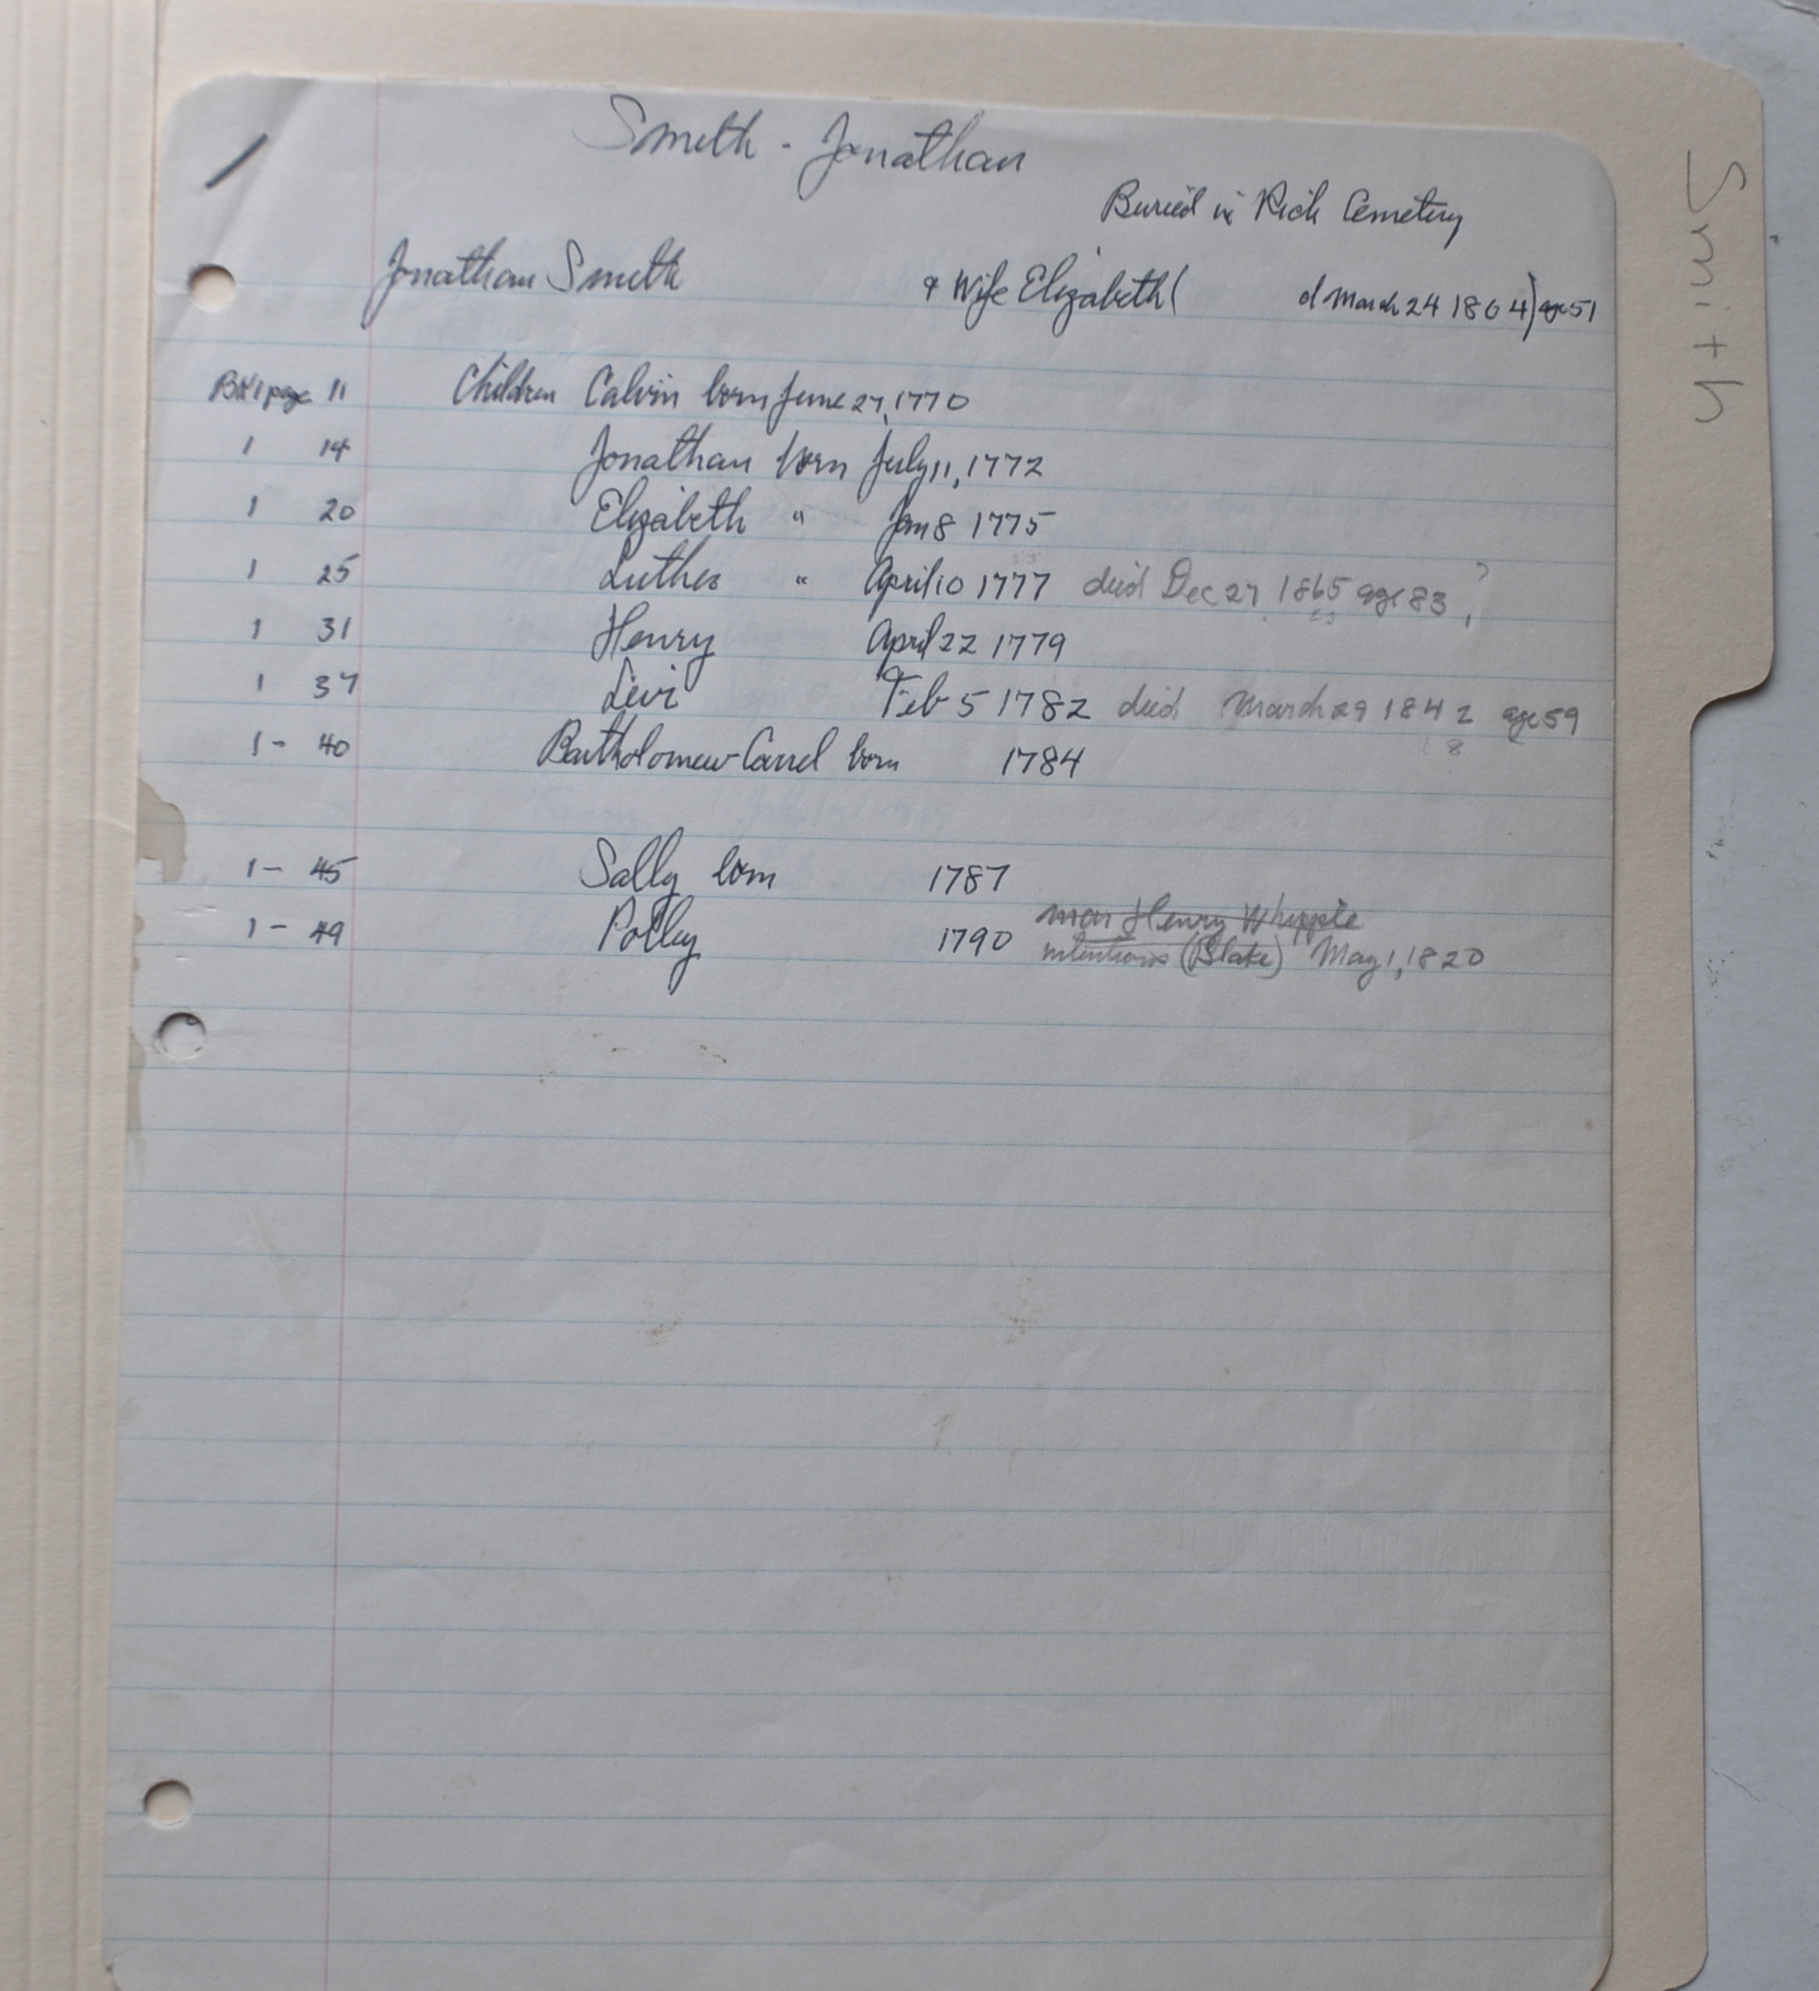 Smith - Jonathan
Buried in Rich Cemetery
Jonathan Smith & Wife Elizabeth ( d March 24 1804) age 51
Bk 1 page 11 Children Calvin born June 27, 1770
1 14 Jonathan born July 11, 1772
1 20 Elizabeth " Jan 8 1775
1 25 Luther " April 10 1777 died Dec 27 1865 age 83 ?
1 31 Henry April 22 1779
1 37 Levi Feb 5 1782 died March 29 1842 age 59
8
1- 40 Bartholomew Carrel born 1784
1- 45 Sally born 1787
1- 49 Polley 1790 mar Henry Whipple
intentions (Blake) May 1, 1820
Smith